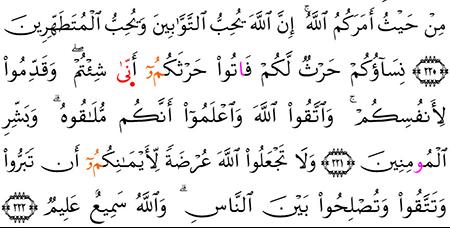 مِنْ حَيْثُ أَمَرَكُمُ ٱللَّهُۚ إِنَّ ٱللَّهَ يُحِبُّ ٱلتَّوَّٰبِينَ وَيُحِبُّ ٱلْمُتَطَهِّرِينَ
٢٢٠ نِسَآؤُكُمْ حَرْثٌ لَّكُمْ فَاتُوا۟ حَرْثَكُمُۥٓ أَنّىٰ شِئْتُمْۖ وَقَدِّمُوا۟
لِأَنفُسِكُمْۚ وَٱتَّقُوا۟ ٱللَّهَ وَٱعْلَمُوٓا۟ أَنَّكُم مُّلَٰقُوهُۗ وَبَشِّرِ
ٱلْمُومِنِينَ ٢٢١ وَلَا تَجْعَلُوا۟ ٱللَّهَ عُرْضَةً لِّأَيْمَٰنِكُمُۥٓ أَن تَبَرُّوا۟
وَتَتَّقُوا۟ وَتُصْلِحُوا۟ بَيْنَ ٱلنَّاسِۗ وَٱللَّهُ سَمِيعٌ عَلِيمٌ ٢٢٢